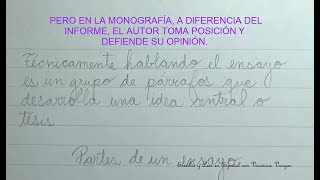 PERO EN LA MONOGRAFÍA, A DIFERENCIA DEL
INFORME, EL AUTOR TOMA POSICIÓN Y
DEFIENDE SU OPINIÓN.
Técnicamente hablando el ensayo
es un grupo de párrafos que
desarrolla una idea central o
tésis
Partes de un ensayo
Escribir y Leer en Español con Verónica Vargas